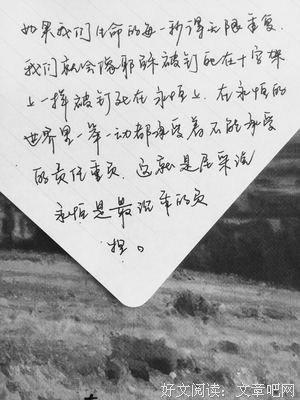 如果我们生命的每一秒得无限重复.
我们就会像耶稣被钉死在十字架
上一样被钉死在永恒上. 在永恒的
世界里一举一动都承受着不能承受
的责任重负. 这就是尼采说
永恒是最沉重的负
担。
好文阅读: 文章吧网